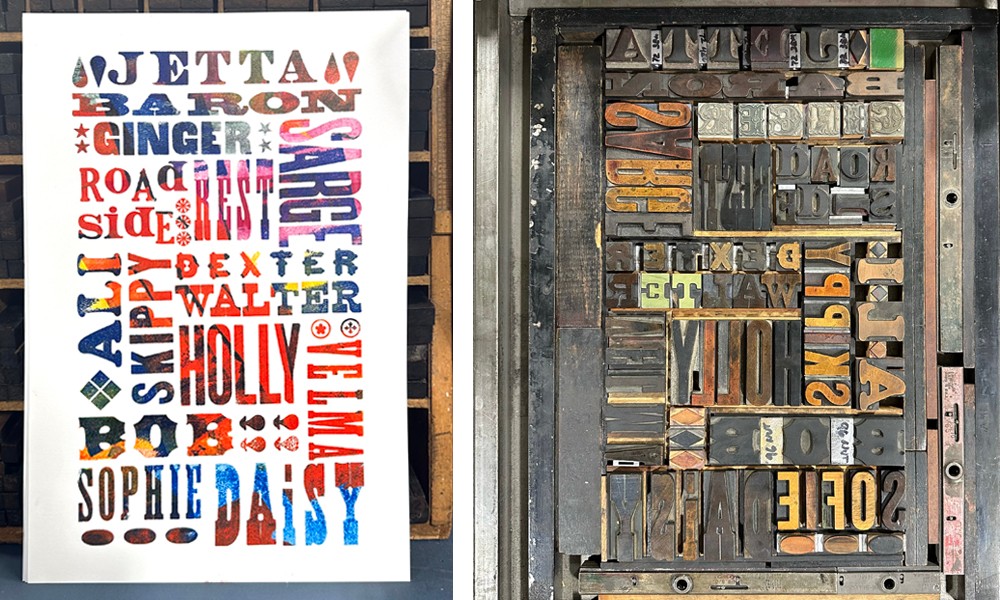 JETTA
BARON
GINGER
SARGE
ROAd
sidE
REST
ALI
SKIPPY
DEXTER
WALTER
HOLLY
VELMA
BOB
SOPHIE
DAiSY